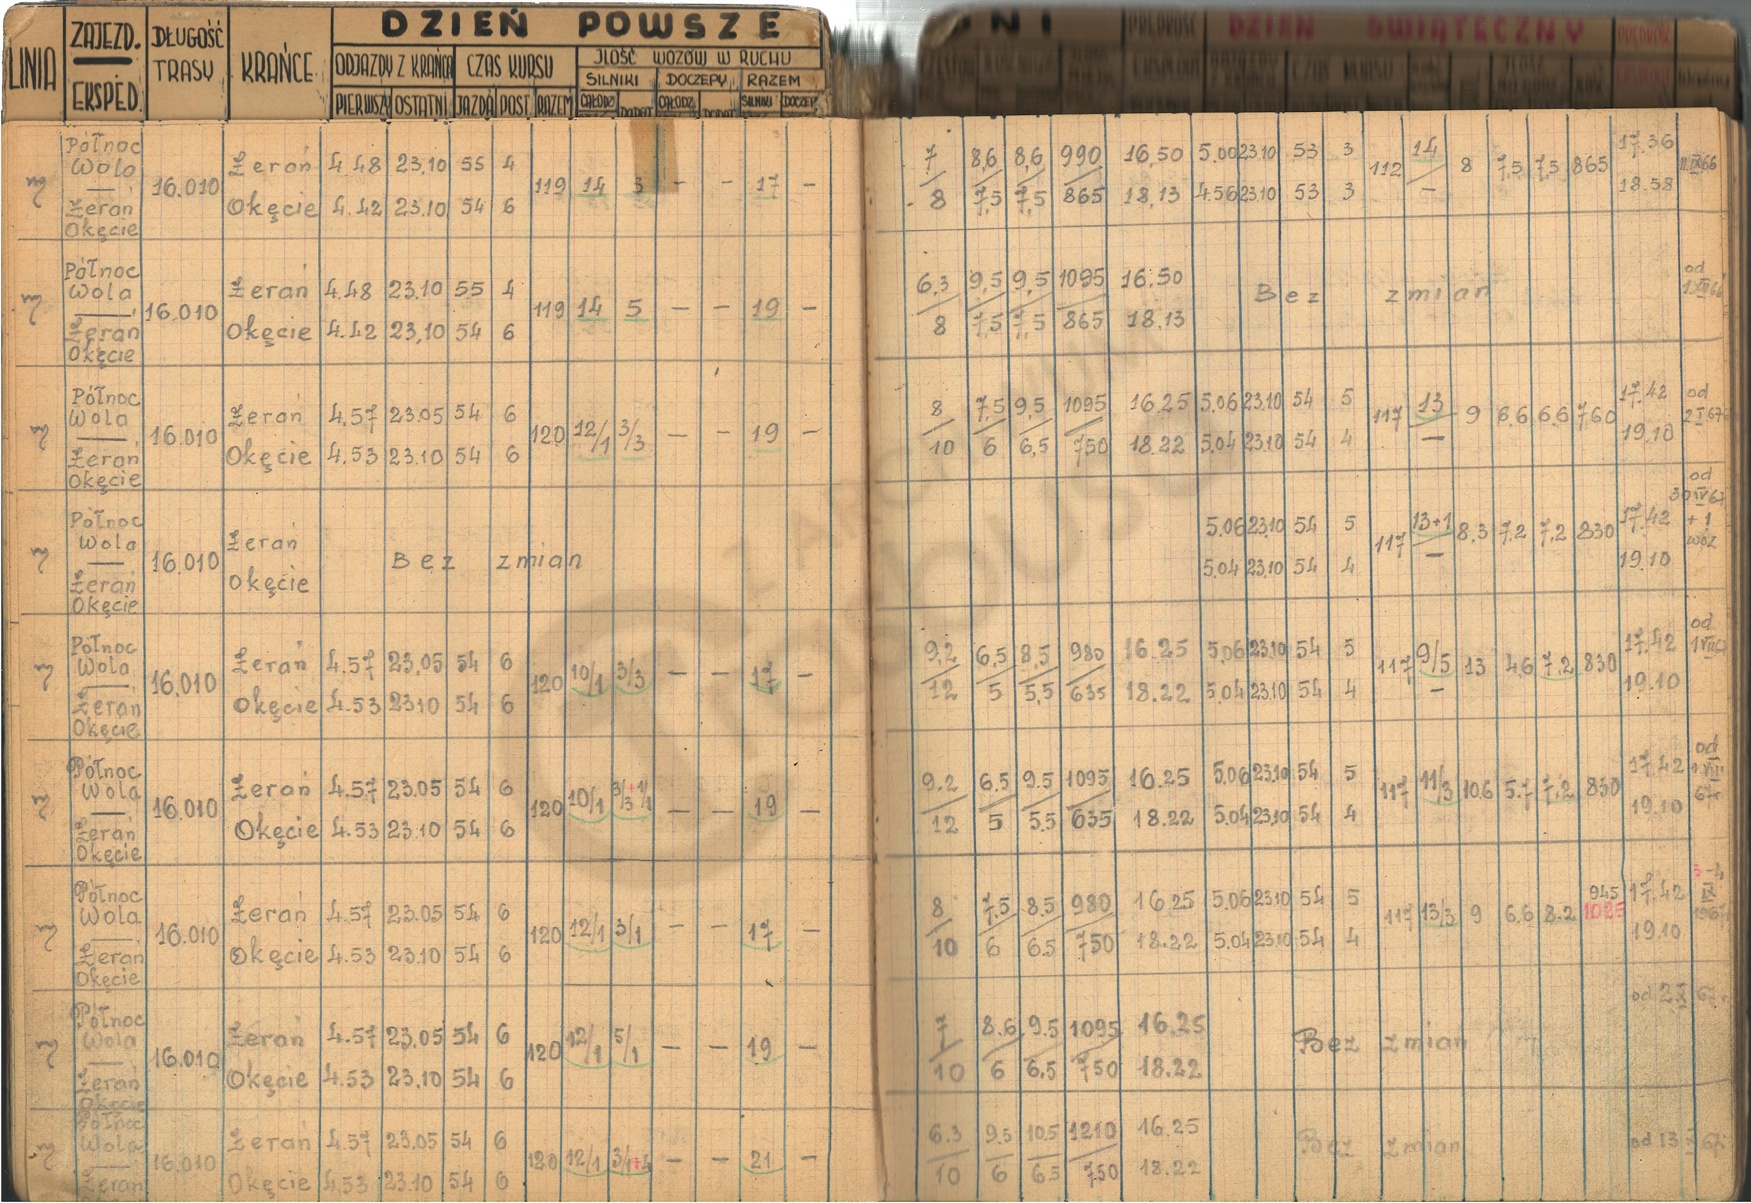 DZIEŃ POWSZE
NI
DZIEŃ ŚWIĄTECZNY
LINIA ZAJEZD. EKSPED. DŁUGOŚĆ TRASY KRAŃCE ODJAZDY Z KRAŃCA CZAS KURSU JLOŚĆ WOZÓW W RUCHU
SILNIKI DOCZEPY RAZEM
PIERWSZY OSTATNI JAZDA POST. RAZEM CAŁODZ DODAT CAŁODZ DODAT SILNIKI DOCZEP
Północ Wola Żerań Okęcie 16.010
Żerań 4.48 23.10 55 4
Okęcie 4.42 23.10 54 6
119 14 3 – – 17 –
7 8,6 8,6 990 16,50 5.00 23.10 53 3
8 7,5 7,5 865 18,13 4.56 23.10 53 3
112 14 – 8 7,5 7,5 865 17.36 18.58
Północ Wola Żerań Okęcie 16.010
Żerań 4.48 23.10 55 4
Okęcie 4.42 23,10 54 6
119 14 5 – – 19 –
6,3 9,5 9,5 1095 16.50
8 7,5 7,5 865 18.13
Bez zmian
od
Północ Wola Żerań Okęcie 16.010
Żerań 4.57 23.05 54 6
Okęcie 4.53 23.10 54 6
120 12/1 3/3 – – 19 –
8 7,5 9,5 1095 16.25 5.06 23.10 54 5
10 6 6,5 750 18.22 5.04 23.10 54 4
117 13 – 9 6.6 6.6 760 17.42 19.10
od 2 I 67
Północ Wola Żerań Okęcie 16.010
Żerań
Okęcie
Bez zmian
5.06 23.10 54 5
5.04 23.10 54 4
117 13+1 – 8,3 7.2 7,2 830 17.42 19.10
od 30 IV 67 +1 wóz
Północ Wola Żerań Okęcie 16.010
Żerań 4.57 23.05 54 6
Okęcie 4.53 23.10 54 6
120 10/1 3/3 – – 17 –
9,2 6,5 8,5 980 16.25 5,06 23.10 54 5
12 5 5,5 635 18.22 5.04 23.10 54 4
117 9/5 – 13 4.6 7.2 830 17.42 19.10
od
Północ Wola Żerań Okęcie 16.010
Żerań 4.57 23.05 54 6
Okęcie 4.53 23.10 54 6
120 10/1 3/3 +1/1 – – 19 –
9.2 6.5 9.5 1095 16.25 5.06 23.10 54 5
12 5 5.5 635 18.22 5.04 23.10 54 4
117 11/3 10.6 5.7 7.2 830 17.42 19.10
od 1.VIII 67r.
Północ Wola Żerań Okęcie 16.010
Żerań 4.57 23.05 54 6
Okęcie 4.53 23.10 54 6
120 12/1 3/1 – – 17 –
8 7,5 8.5 980 16.25 5.06 23.10 54 5
10 6 6.5 750 18.22 5.04 23.10 54 4
117 13/3 9 6.6 8.2 945 1025 17.42 19.10
3 IX 1967
Północ Wola Żerań Okęcie 16.010
Żerań 4.57 23.05 54 6
Okęcie 4.53 23.10 54 6
120 12/1 5/1 – – 19 –
7 8.6 9.5 1095 16.25
10 6 6.5 750 18.22
Bez zmian
od 2 X 67r.
Północ Wola Żerań 16.010
Żerań 4.57 23.05 54 6
Okęcie 4.53 23.10 54 6
120 12/1 3/1+4 – – 21 –
6.3 9.5 10.5 1210 16.25
10 6 6.5 750 18.22
Bez zmian
od 13 67r.